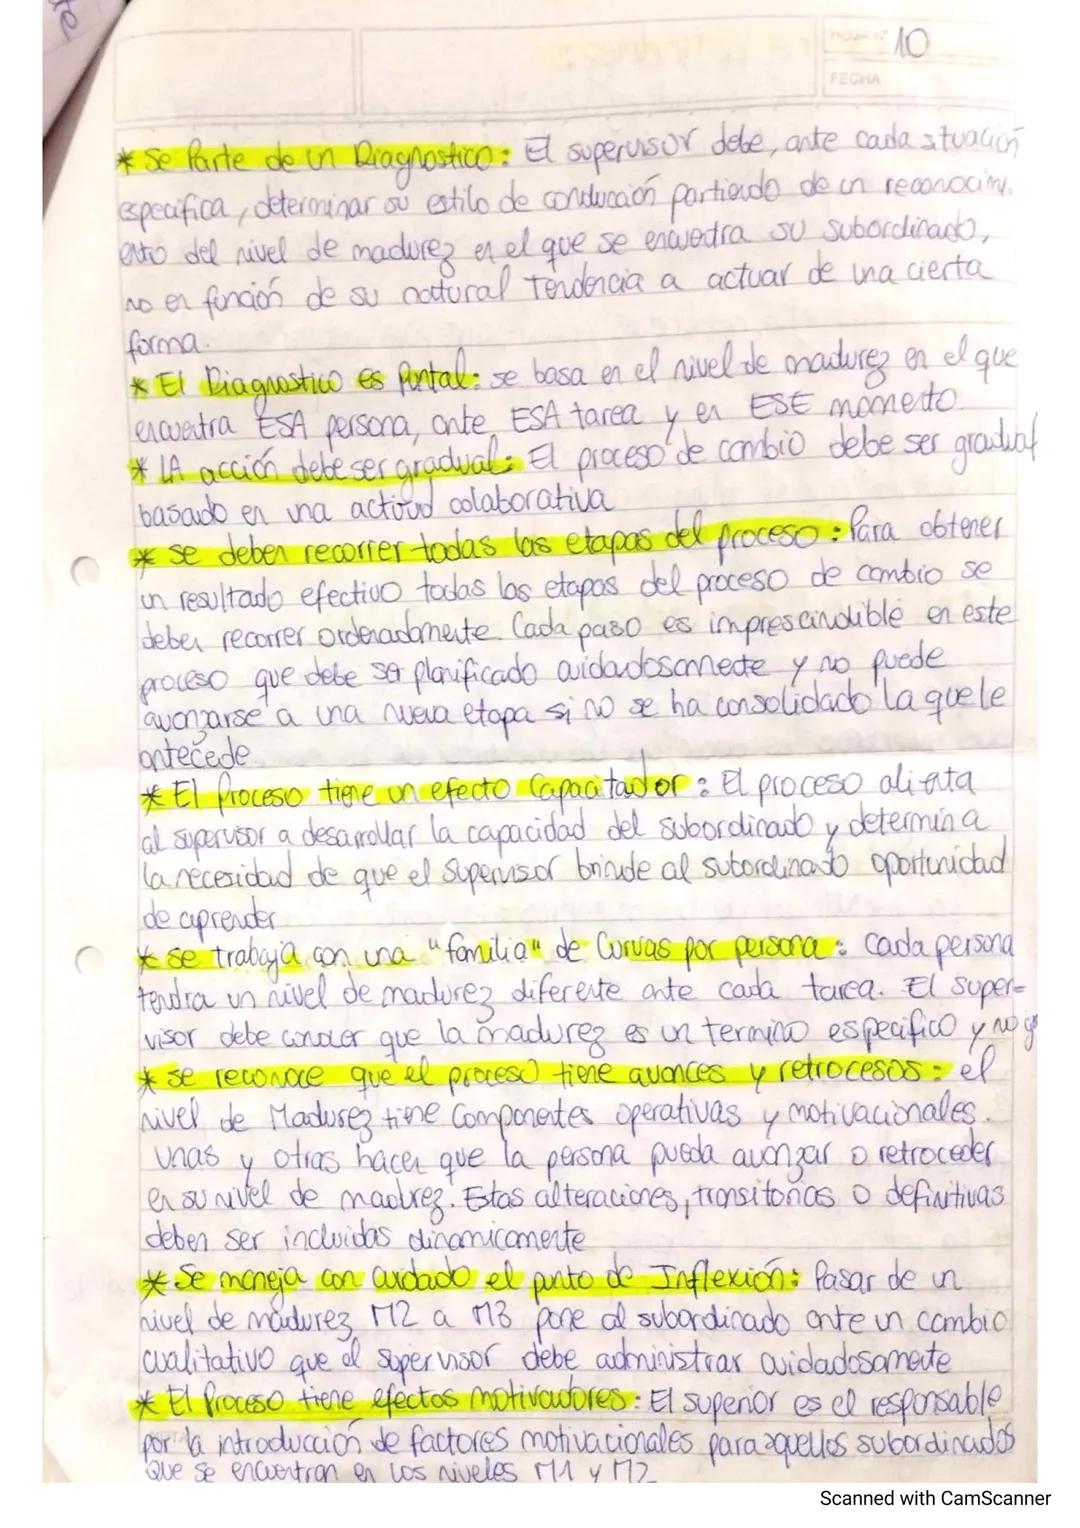 te
HOJA Nº 10
FECHA
* Se Parte de un Diagnostico: El supervisor debe, ante cada situación
especifica, determinar su estilo de conducción partiendo de un reconocimi,
ento del nivel de madurez en el que se encuentra su subordinado,
no en función de su natural Tendencia a actuar de una cierta
forma.
* El Diagnostico es Puntal: se basa en el nivel de madurez en el que
encuentra ESA persona, ante ESA tarea y en ESE momento.
* LA acción debe ser gradual: El proceso de cambio debe ser gradual
basado en una actitud colaborativa
* se deben recorrer todas las etapas del proceso: Para obtener
un resultado efectivo todas las etapas del proceso de cambio se
deben recorrer ordenadamente. Cada paso es imprescindible en este
proceso que debe ser planificado cuidadosamente y no puede
avanzarse a una nueva etapa si no se ha consolidado la que le
antecede.
* El Proceso tiene un efecto Capacitador: El proceso alienta
al supervisor a desarrollar la capacidad del subordinado y determina
la necesidad de que el supervisor brinde al subordinado oportunidad
de aprender
* se trabaja con una "familia" de Curvas por persona: Cada persona
tendra un nivel de madurez diferente ante cada tarea. El super-
visor debe conocer que la madurez es un termino especifico y no
* se reconoce que el proceso tiene avances y retrocesos: el
nivel de Madurez tiene Componentes operativas y motivacionales.
Unas y otras hacen que la persona pueda avanzar o retroceder
en su nivel de madurez. Estas alteraciones, transitorias o definitivas
deben ser incluidas dinamicamente
* Se maneja con cuidado el punto de Inflexión: Pasar de un
nivel de madurez M2 a M3 pone al subordinado ante un cambio
cualitativo que el supervisor debe administrar cuidadosamente
* El Proceso tiene efectos motivadores: El superior es el responsable
por la introducción de factores motivacionales para aquellos subordinados
que se encuentran en los niveles M1 y M2
Scanned with CamScanner